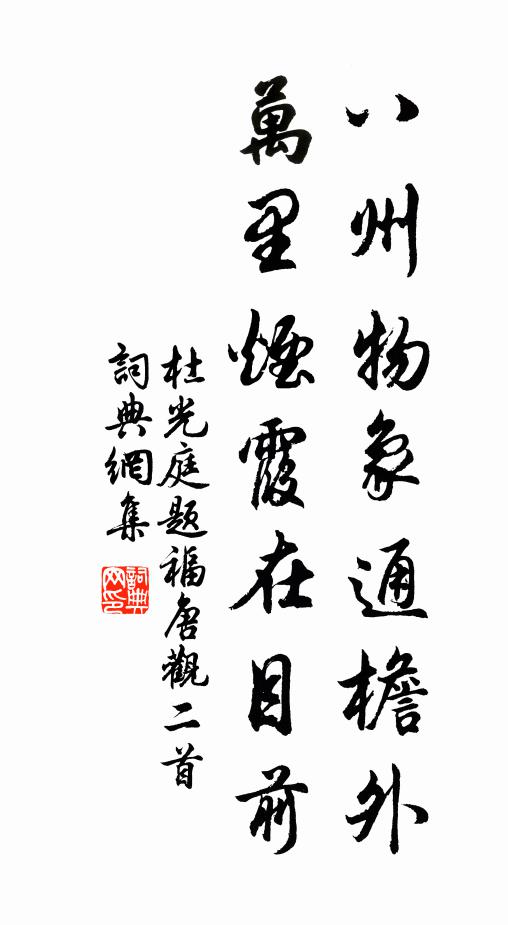 八州物象通檐外
萬里煙霞在目前
杜光庭題福唐觀二首
詞典網集
詞典網印